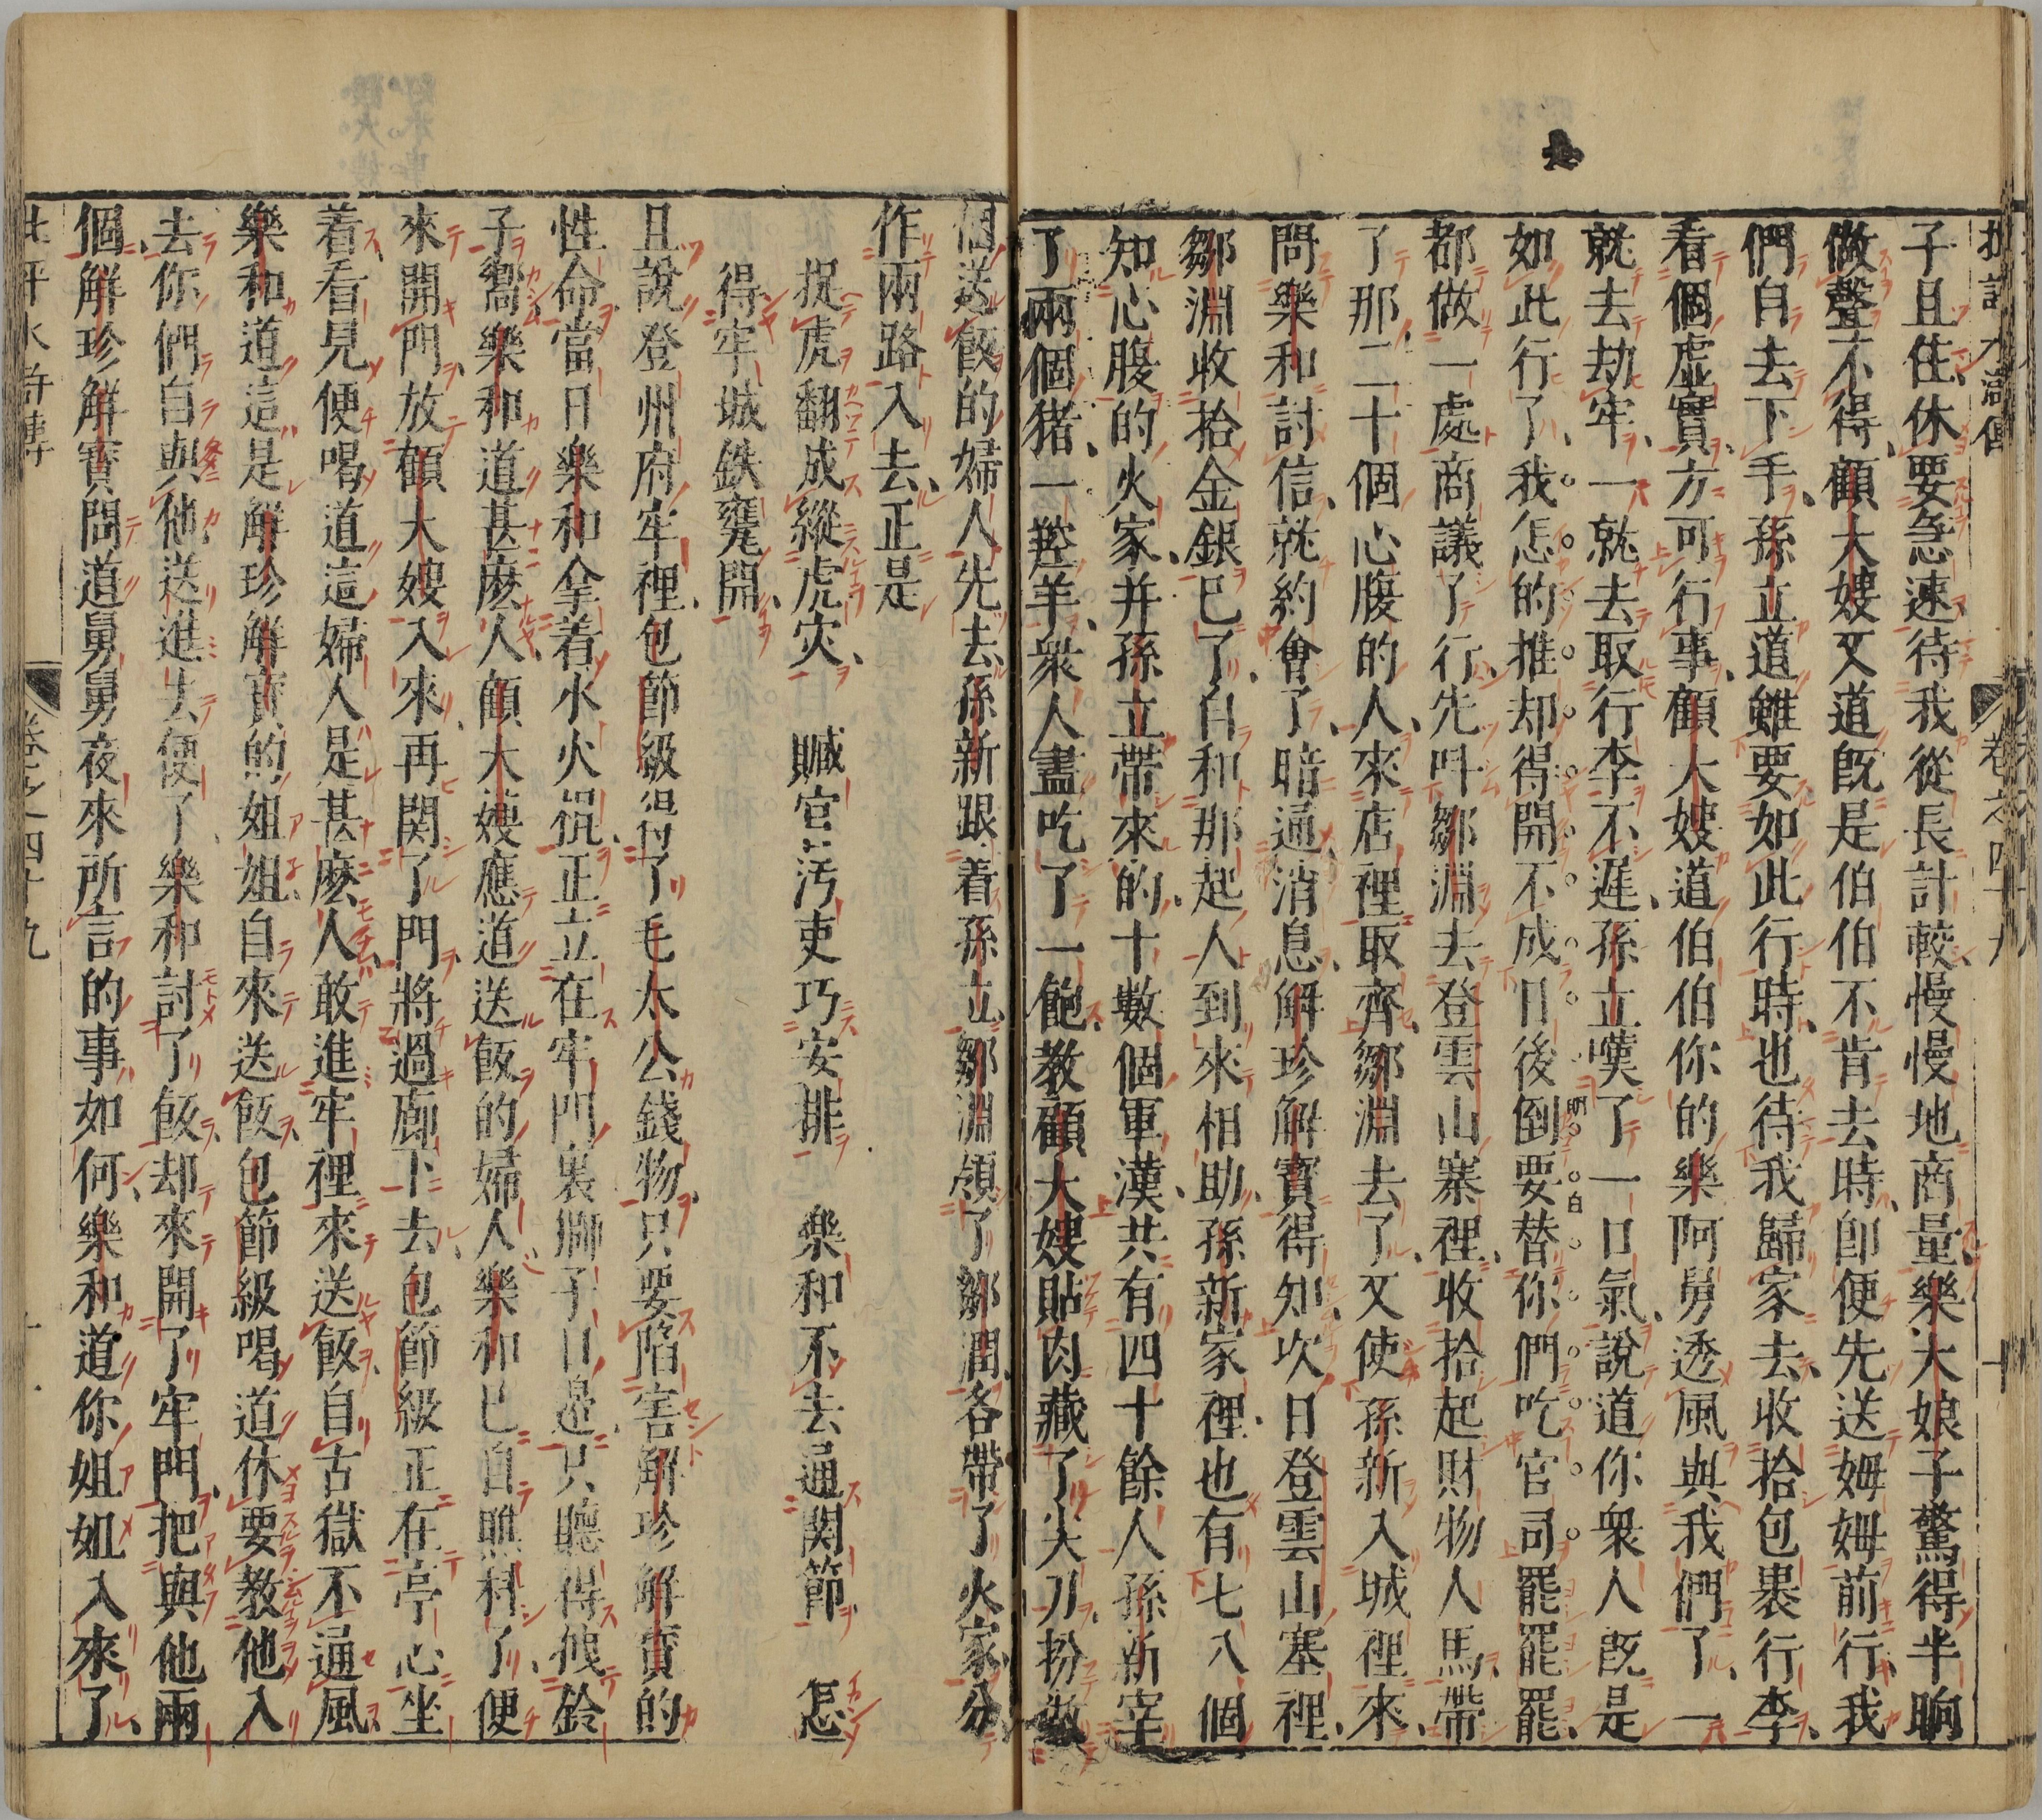 批評水滸傳 卷之四十九 十
子且住休要急速待我從長計較慢慢地商量樂大娘子驚得半晌
做聲不得顧大嫂又道既是伯伯不肯去時卽便先送姆姆前行我
們自去下手孫立道雖要如此行時也待我歸家去收拾包裹行李
看個虛實方可行事顧大嫂道伯伯你的樂阿舅透風與我們了一
就去劫牢一就去取行李不遲孫立嘆了一口氣說道你衆人既是
如此行了我怎的推却得開不成日後倒要替你們吃官司罷罷罷
都做一處商議了行先呌鄒淵去登雲山寨裡收拾起財物人馬帶
了那二十個心腹的人來店裡取齊鄒淵去了又使孫新入城裡來
問樂和討信就約會了暗通消息解珍解寶得知次日登雲山寨裡
鄒淵收拾金銀已了自和那起人到來相助孫新家裡也有七八個
知心腹的火家并孫立帶來的十數個軍漢共有四十餘人孫新宰
了兩個猪一羫羊衆人盡吃了一飽教顧大嫂貼肉藏了尖刀扮做
個送飯的婦人先去孫新跟着孫立鄒淵領了鄒潤各帶了火家分
作兩路入去正是
捉虎翻成縱虎灾 贓官汚吏巧安排 樂和不去通関節 怎
得牢城鉄甕開
且說登州府牢裡包節級得了毛太公錢物只要陷害解珍解寶的
性命當日樂和拿着水火棍正立在牢門裏獅子口邉只聽得拽鈴
子響樂和道甚麽人顧大嫂應道送飯的婦人樂和已自瞧科了便
來開門放顧大嫂入來再関了門將過廊下去包節級正在亭心坐
着看見便喝道這婦人是甚麽人敢進牢裡來送飯自古獄不通風
樂和道這是解珍解寶的姐姐自來送飯包節級喝道休要教他入
去你們自與他送進去便了樂和討了飯却來開了牢門把與他兩
個解珍解寶問道舅舅夜來所言的事如何樂和道你姐姐入來了
批評水滸傳 卷之四十九 十一